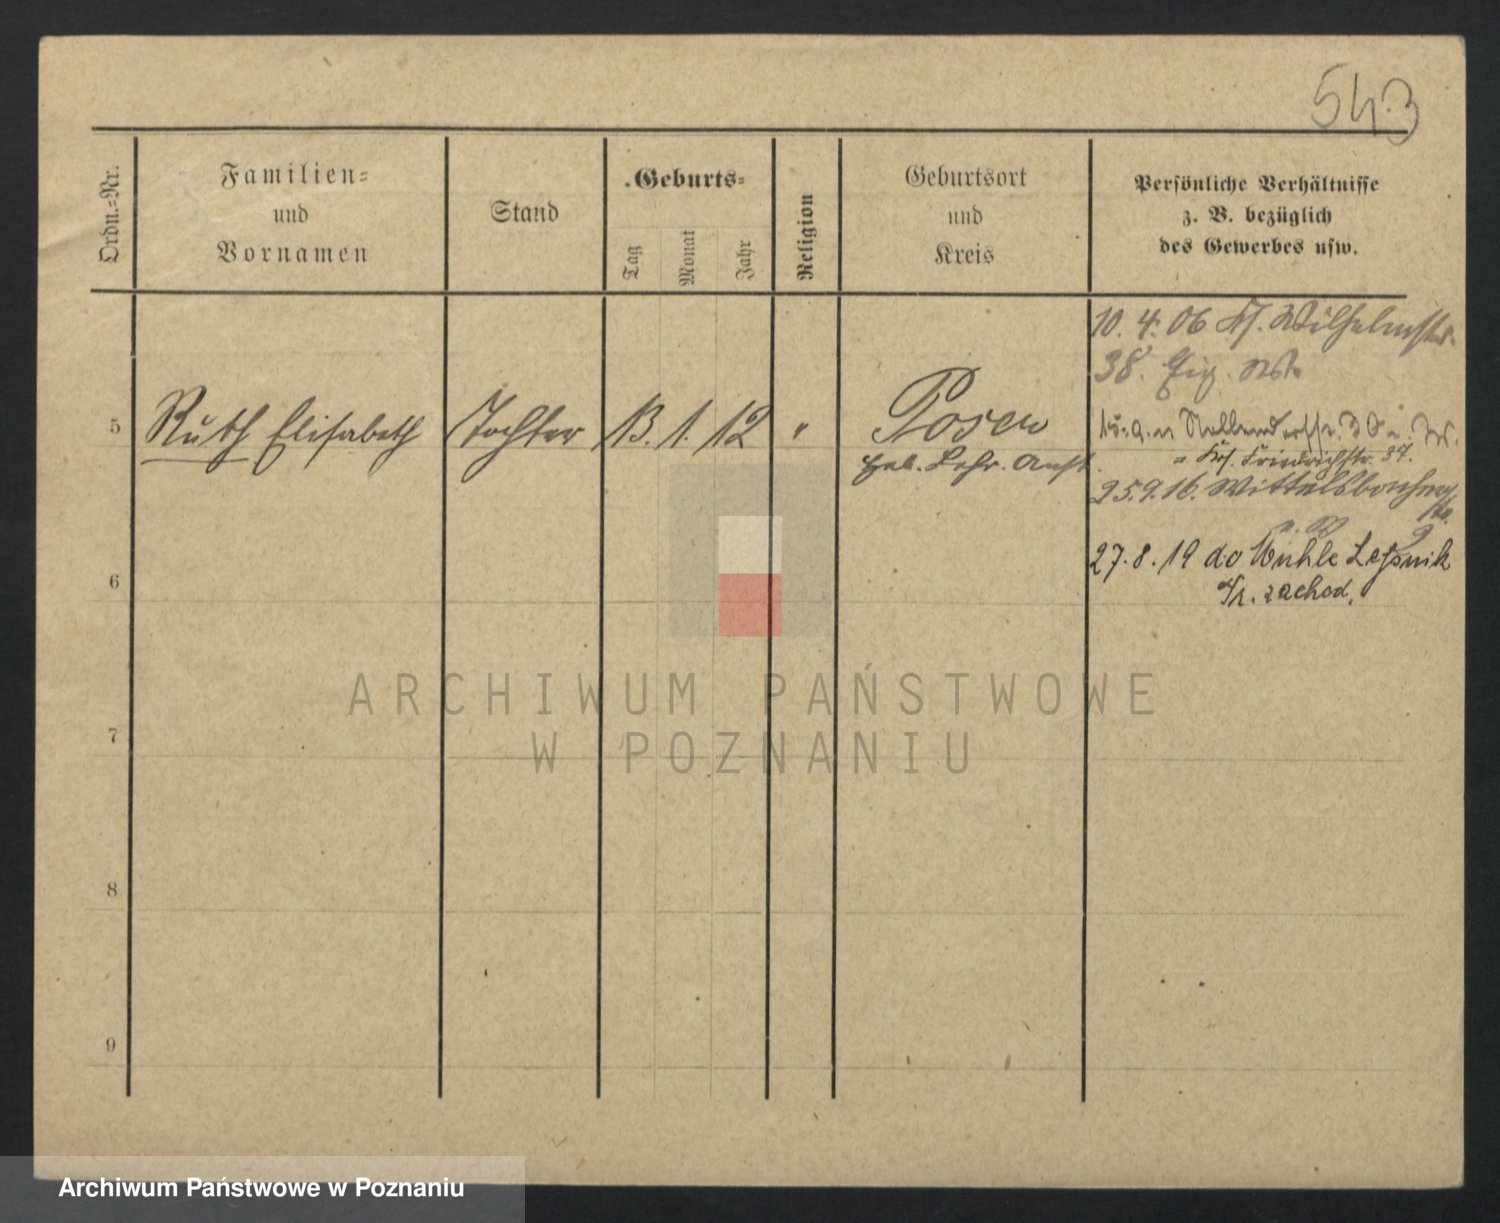 543
Ordn.=Nr.
Familien=
und
Vornamen
Stand
Geburts=
Tag
Monat
Jahr
Religion
Geburtsort
und
Kreis
Persönliche Verhältnisse
z. B. bezüglich
des Gewerbes usw.
10. 4. 06 Wilhelmstr.
38.
5
Ruth Elisabeth
Tochter
13.
1.
12
"
Posen
Heb. Lehr. Anst.
Friedrichstr. 37.
25.9.16. Wittelsbacher
27.8.19 do Mühle
zachod.
6
7
8
9
ARCHIWUM PAŃSTWOWE
W POZNANIU
Archiwum Państwowe w Poznaniu